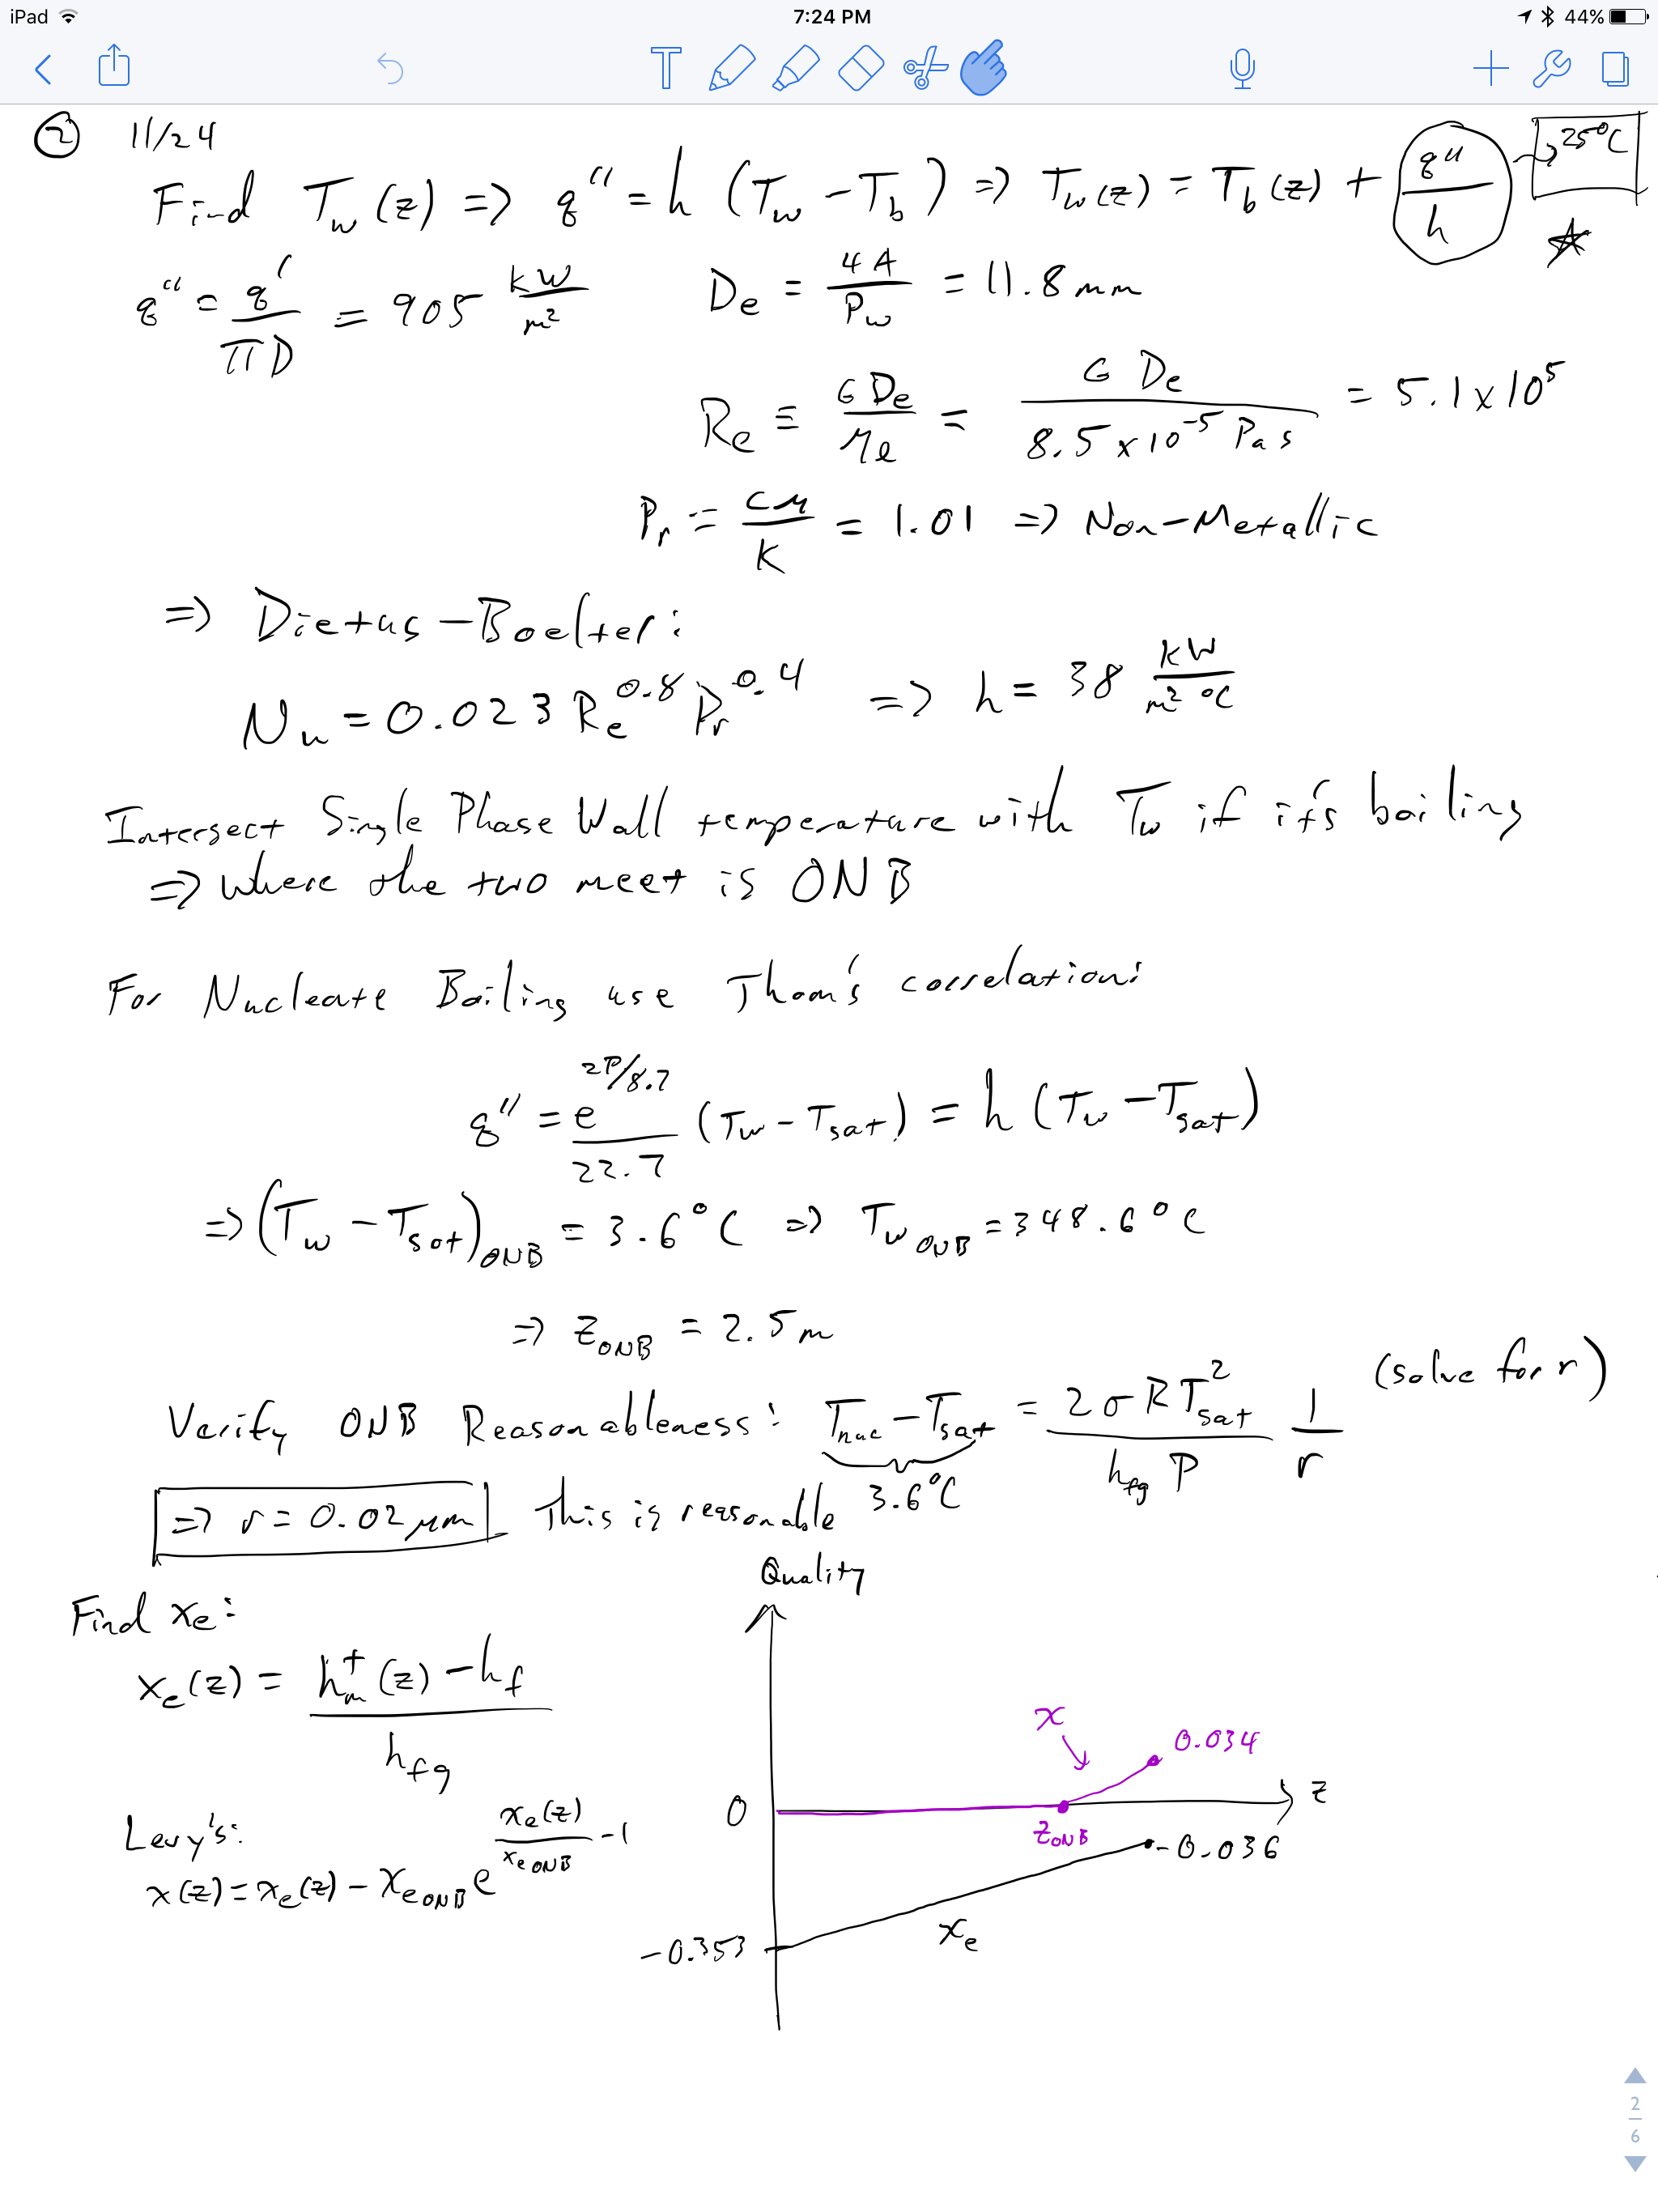 iPad 7:24 PM 44%
T
② 11/24
Find Tw(z) => q'' = h (Tw - Tb) => Tw(z) = Tb(z) + q''/h → 25°C ☆
q'' = q'/πD = 905 kW/m² De = 4A/Pw = 11.8 mm
Re ≡ G De/μℓ = G De/8.5x10⁻⁵ Pa s = 5.1x10⁵
Pr = cμ/K = 1.01 => Non-Metallic
=> Dietus-Boelter:
Nu = 0.023 Re^0.8 Pr^0.4 => h = 38 kW/m² °C
Intersect Single Phase Wall temperature with Tw if it's boiling
=> where the two meet is ONB
For Nucleate Boiling use Thom's correlation:
q'' = e^(2P/8.7)/22.7 (Tw - Tsat) = h (Tw - Tsat)
=> (Tw - Tsat)ONB = 3.6°C => Tw ONB = 348.6°C
=> zONB = 2.5 m
Verify ONB Reasonableness: Tnuc - Tsat = 2σRT²sat/hfg P 1/r (solve for r)
=> r = 0.02 μm This is reasonable 3.6°C
Quality
Find xe:
xe(z) = h⁺m(z) - hf/hfg
x 0.034
0 z
zONB
Levy's:
x(z) = xe(z) - xeONB e^(xe(z)/xeONB - 1)
-0.036
xe
-0.353
2
6